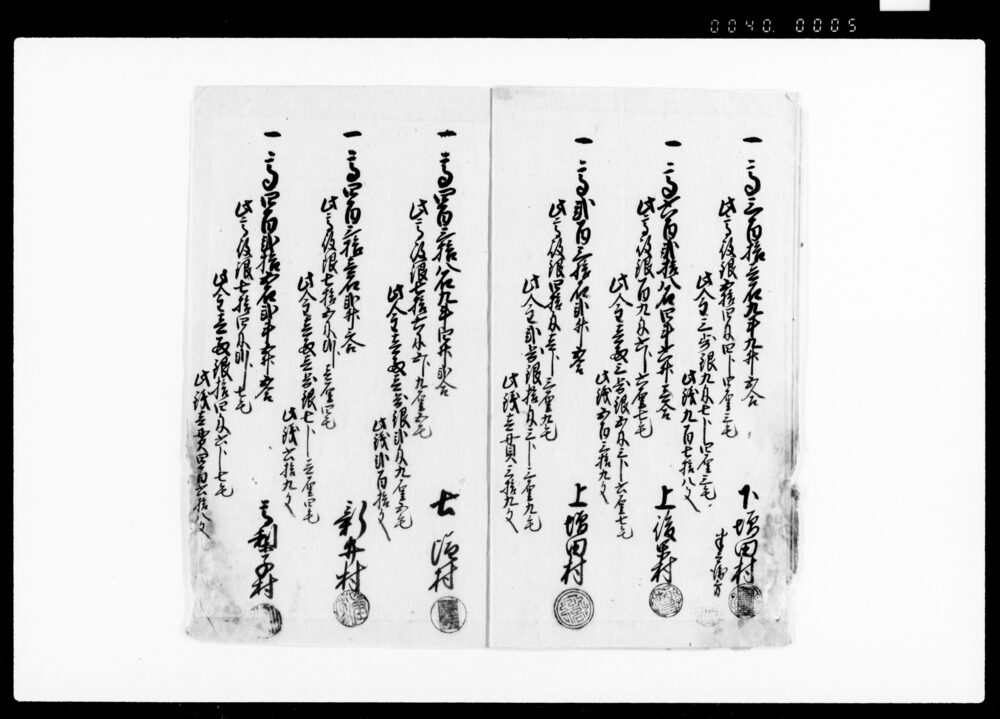 0040. 0005
一高三百拾壱石九斗九升五合
此高役銀五拾四匁四分四厘三毛
此金三歩銀九匁七分四厘三毛
此銭九百七拾八文
下増田村
一高六百弐拾八石四斗六升三合
此高役銀百九匁六分六厘七毛
此金壱両三歩銀五匁三分六厘七毛
此銭五百三拾九文
上後閑村
一高弐百三拾石弐升五合
此高役銀四拾匁壱分三厘九毛
此金弐歩銀拾匁三分三厘九毛
此銭壱貫三拾九文
上増田村
一高四百三拾八石九斗四升弐合
此高役銀七拾六匁五分九厘五毛
此金壱両壱歩銀弐匁九厘五毛
此銭弐百拾文
土塩村
一高四百三拾壱石弐升三合
此高役銀七拾五匁弐分壱厘四毛
此金壱両壱歩銀七分壱厘四毛
此銭六拾九文
新井村
一高四百弐拾五石弐斗五升五合
此高役銀七拾四匁弐分七毛
此金壱両銀拾四匁六分七毛
此銭壱貫四百六拾八文
高梨子村